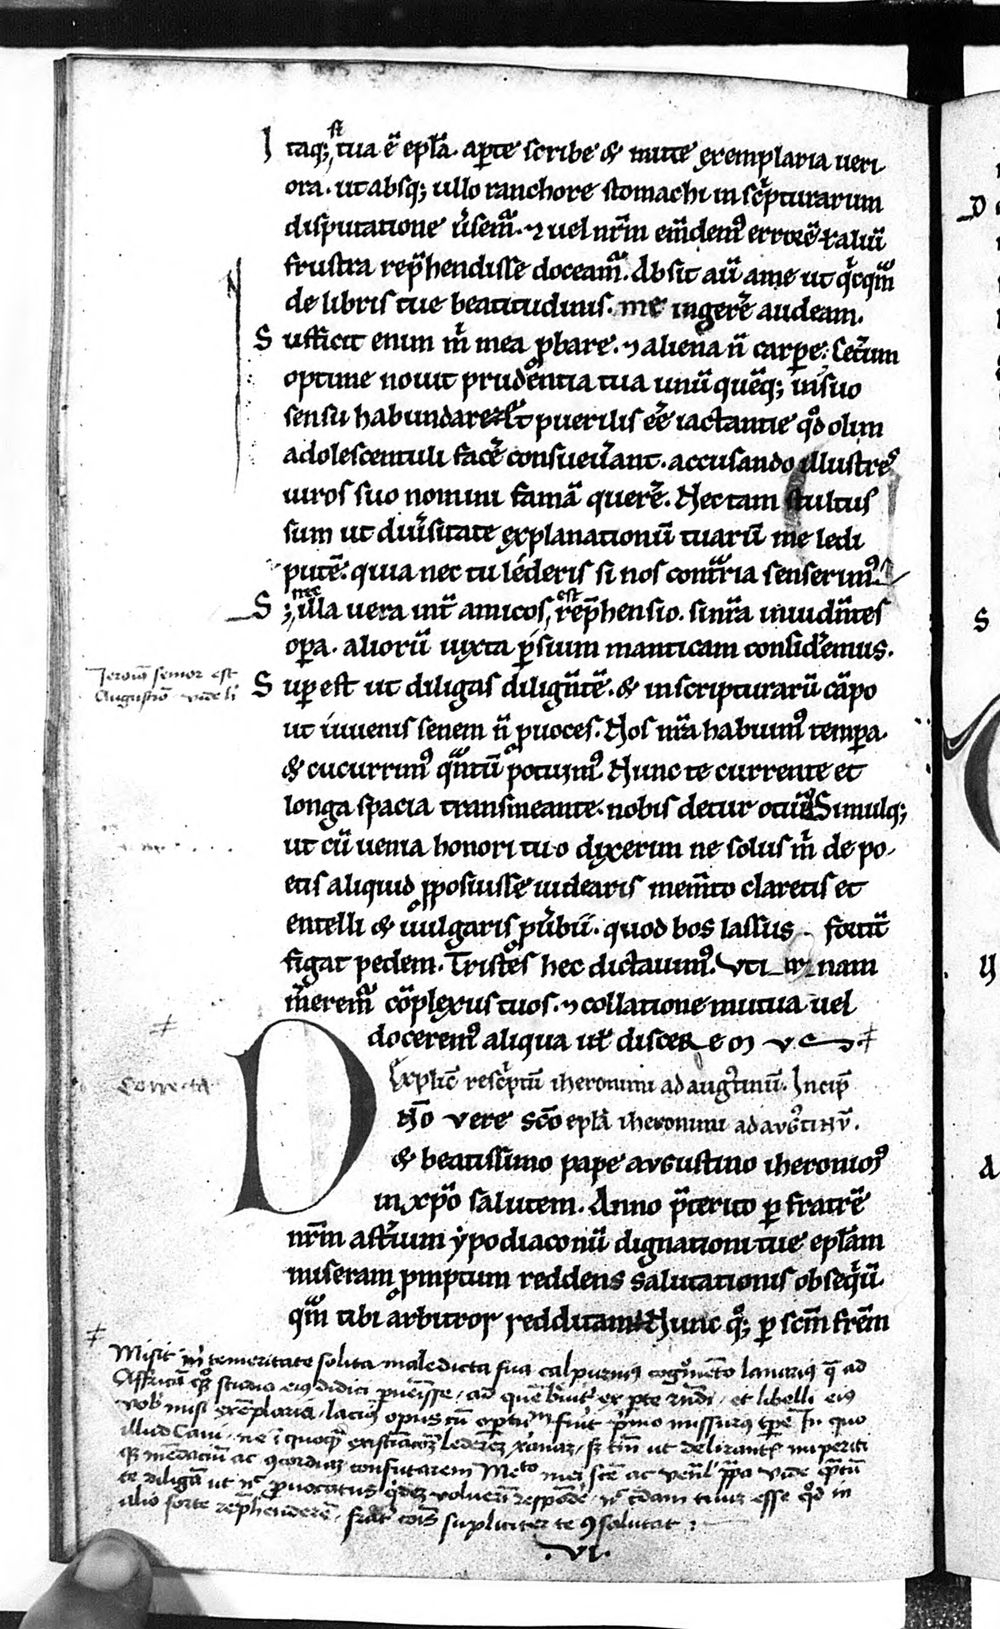 Itaq; si tua ē epl̄a. aperte scribe & mitte exemplaria ueri
ora. ut absq; ullo ranchore stomachi in sc̄pturarum
disputatione u̓sem᷑. ⁊ uel nr̄m em̄dem᷒ errorē ł aliū
frustra rep̄hendisse doceam᷑. Absit aū a me ut q̇cq̄m
de libris tue beatitudinis. me ingere̓ audeam.
Sufficit enim m̓ mea ꝓbare. ⁊ aliena ñ carpe̓. Cet̓um
optime nouit prudentia tua unū quēq; in suo
sensu habundare. & puerilis eē̓ iactantie qd̓ olim
adolescentuli face̓ consueu̓ant. accusando illustres
uiros suo nomini famā quere̓. Nec tam stultus
sum ut diu̓sitate explanationū tuarū me ledi
putē. quia nec tu léderis si nos cont̄ria senserim᷒.
S; nec illa uera int̓ amicos est rep̄hensio. si nr̄a inuid̄ntes
opa. aliorū iuxta p̓sium manticam consid̓emus.
Supest ut diligas dilign̄tē. & in scripturarū cāpo
ut iuuenis senem ñ ꝓuoces. Nos nr̄a habuim᷒ tempora.
& cucurrim᷒ q̄ntū potuim᷒. Nunc te currente et
longa spacia transmeante. nobis detur otiū. Simulq;
ut cū uenia honori tuo dixerim ne solus m̓ de po
etis aliquid ꝓposuisse uidearis mem̄to claretis et
entelli & uulgaris ꝓu̓bii. quod bos lassus fortiū
figat pedem. Tristes hec dictauim᷒. Vti nam
m̓erem᷑ cōplexus tuos. ⁊ collatione mutua uel
docerem᷒ aliqua ut̓ disceremus.
Explic̄ resc̓ptū iheronimi ad aug᷒tinū. Incip̄
nō vere sc̄o epl̄a iheronimi ad avg᷒tinū.
D & beatissimo pape avgustino iheronim᷒
in xp̄o salutem. Anno p̄terito p fratrē
nr̄m ast̓ium ypodiaconū dignationi tue epl̄am
miseram ꝓmptum reddens salutationis obseq̇ū
q̄m tibi arbitror redditam. Nunc q᷒; p scm̄ frēm
Jeroī senior est
Augustīo vide li
Correcta
Misit m̓ temeritate solita maledicta sua calpurni᷒ cognōmēto lanari᷒ q̄ ad
Affricā q᷒; studio ei᷒ didici puēisse, ad quē breuit̓ ex pte rn̄di, et libelli ei᷒
vob̓ misi exēplaria, laci᷒ op᷒ cū optū fu̓it p̓mo missur᷒ tp̄e. In quo
illud caui, ne ī quoq̄ existiatōez lederez x̄ianaz, s; tm̄ ut delirantis īperiti
q; mēdaciū ac confutarem. Meto mei sc̄e ac venl̓ pp̄a vide q̄tū
te diligā ut nc̄ ꝓuocatus q̇dez voluerī respōde̓, nc̄ c̓dam tuuz esse qd̓ in
alio forte rep̄henderē, frat̓ cōis supliciter te ꝯsalutat:
.VI.